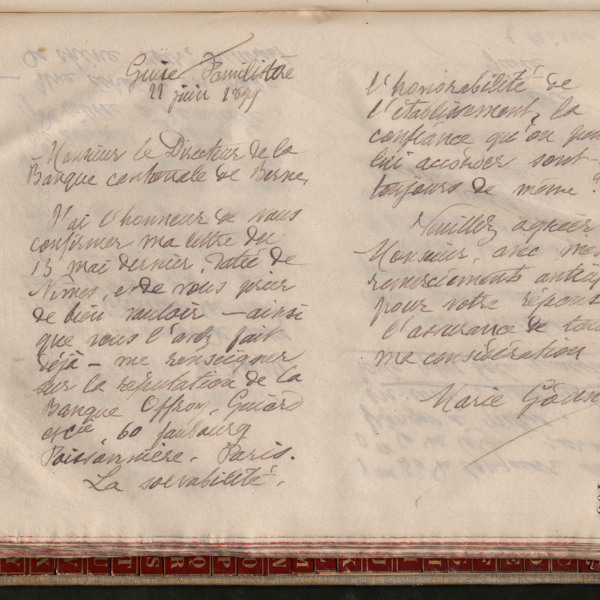 Guise Familistère
22 juin 1899
Monsieur le Directeur de la
Banque cantonale de Berne,
J'ai l'honneur de vous
confirmer ma lettre du
13 mai dernier, datée de
Nîmes, et de vous prier
de bien vouloir – ainsi
que vous l'avez fait
déjà – me renseigner
sur la réputation de la
Banque Offroy, Guiard
et Cie, 60 faubourg
Poissonnière. Paris.
La solvabilité,
l'honorabilité de
l'établissement, la
confiance qu'on peu
lui accorder sont-
toujours de même ?
Veuillez agréer
Monsieur, avec mes
remerciements antici
pour votre répons
l'assurance de tou
ma considération
Marie Godin